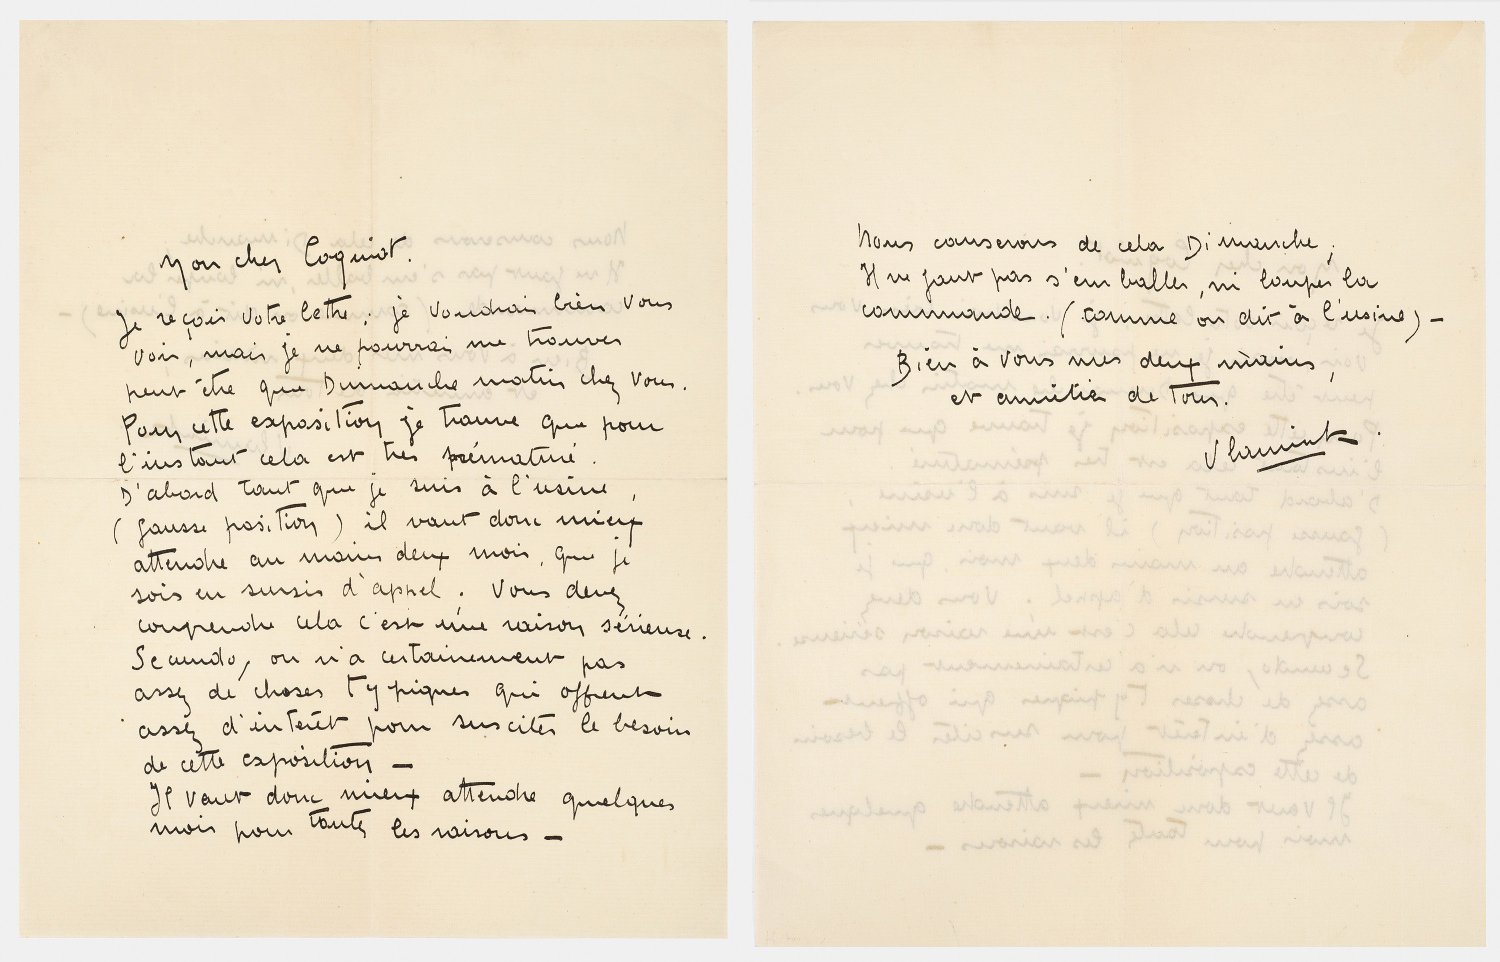 Mon cher Coquiot.
Je reçois votre lettre ; je voudrais bien vous
voir, mais je ne pourrai me trouver
peut-être que Dimanche matin chez vous.
Pour cette exposition je trouve que pour
l'instant cela est très prématuré.
D'abord tant que je suis à l'usine,
(fausse position) il vaut donc mieux
attendre au moins deux mois, que je
sois en sursis d'appel. Vous devez
comprendre cela c'est une raison sérieuse.
Secundo, on n'a certainement pas
assez de choses typiques qui offrent
assez d'intérêt pour susciter le besoin
de cette exposition —
Il vaut donc mieux attendre quelques
mois pour toutes les raisons —
Nous causerons de cela Dimanche ;
Il ne faut pas s'emballer, ni louper la
commande. (comme on dit à l'usine) —
Bien à vous mes deux mains,
et amitiés de tous.
Vlaminck